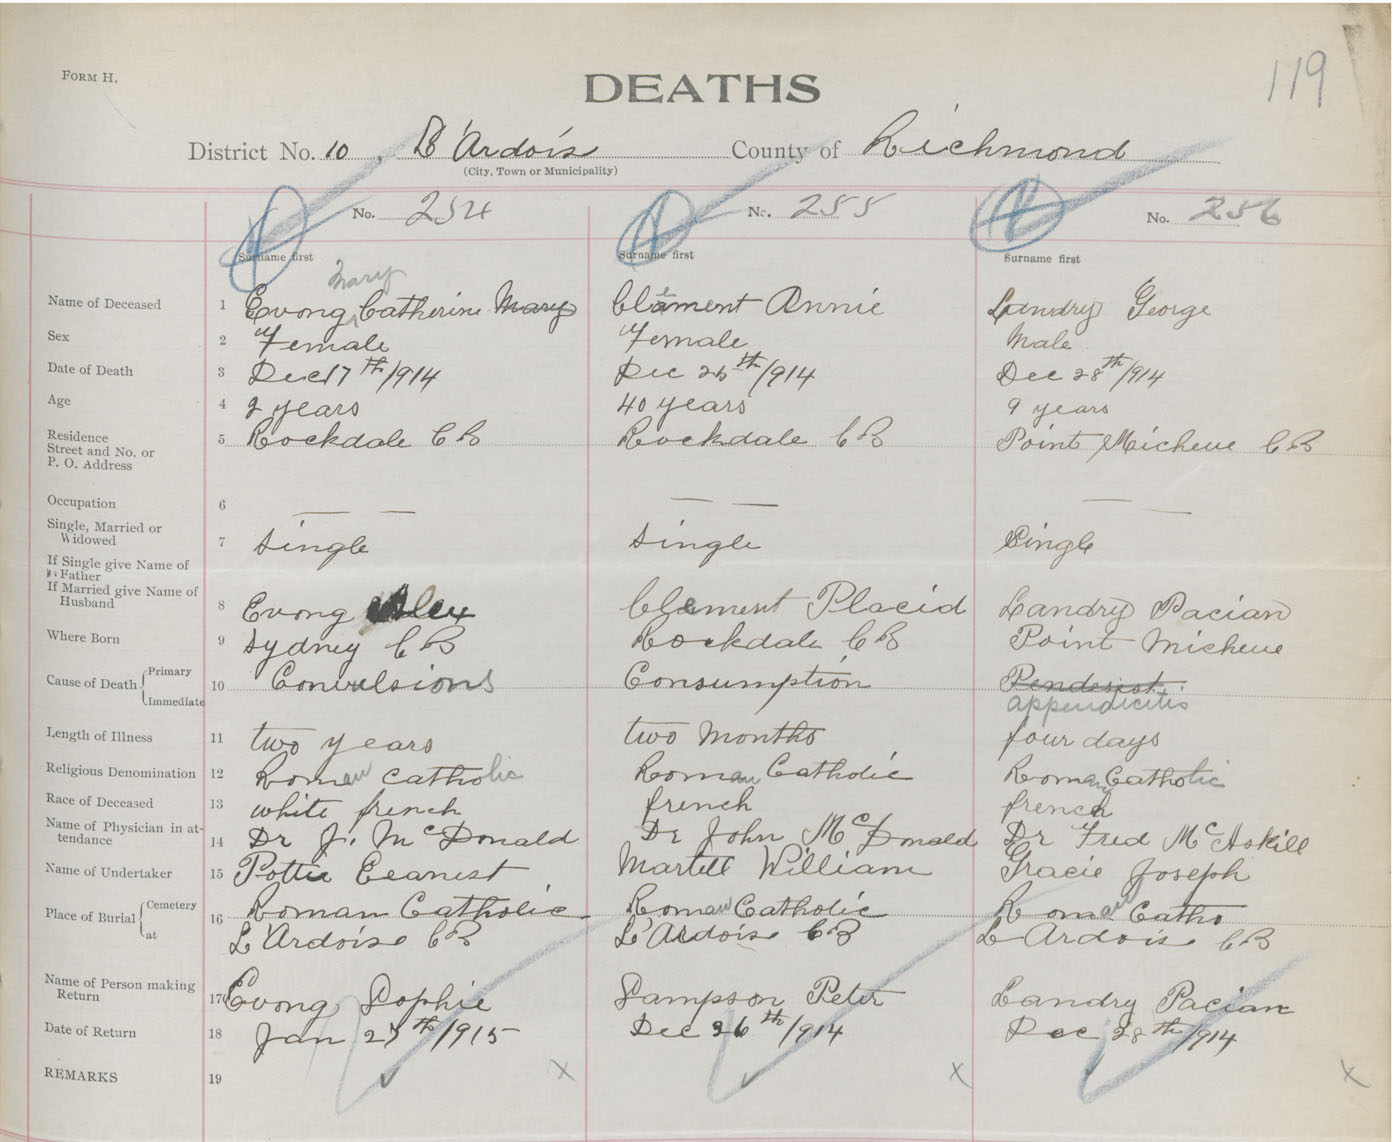 FORM H.
DEATHS
119
District No. 10, L'Ardois County of Richmond
(City, Town or Municipality)
No. 254 No. 255 No. 256
Surname first Surname first Surname first
Mary
Name of Deceased 1 Evong Catherine Mary Clement Annie Landry George
Sex 2 Female Female Male
Date of Death 3 Dec 17th/1914 Dec 25th/1914 Dec 28th/1914
Age 4 2 years 40 years 9 years
Residence 5 Rockdale CB Rockdale CB Point Micheue CB
Street and No. or
P. O. Address
Occupation 6 — — — — — —
Single, Married or
Widowed 7 Single Single Single
If Single give Name of
Father
If Married give Name of
Husband 8 Evong Alex Clement Placid Landry Pacian
Where Born 9 Sydney CB Rockdale CB Point Micheue
Cause of Death { Primary 10 Convulsions Consumption Pendesist
Immediate appendicitis
Length of Illness 11 two years two months four days
Religious Denomination 12 Roman Catholic Roman Catholic Roman Catholic
Race of Deceased 13 white french french french
Name of Physician in at-
tendance 14 Dr J. McDonald Dr John McDonald Dr Fred McAskill
Name of Undertaker 15 Pottie Eeanest Martell William Gracie Joseph
Place of Burial { Cemetery 16 Roman Catholic Roman Catholic Roman Catho
at L'Ardois CB L'Ardois CB L Ardois CB
Name of Person making
Return 17 Evong Sophie Sampson Peter Landry Pacian
Date of Return 18 Jan 25th/1915 Dec 26th/1914 Dec 28th/1914
REMARKS 19 x x x